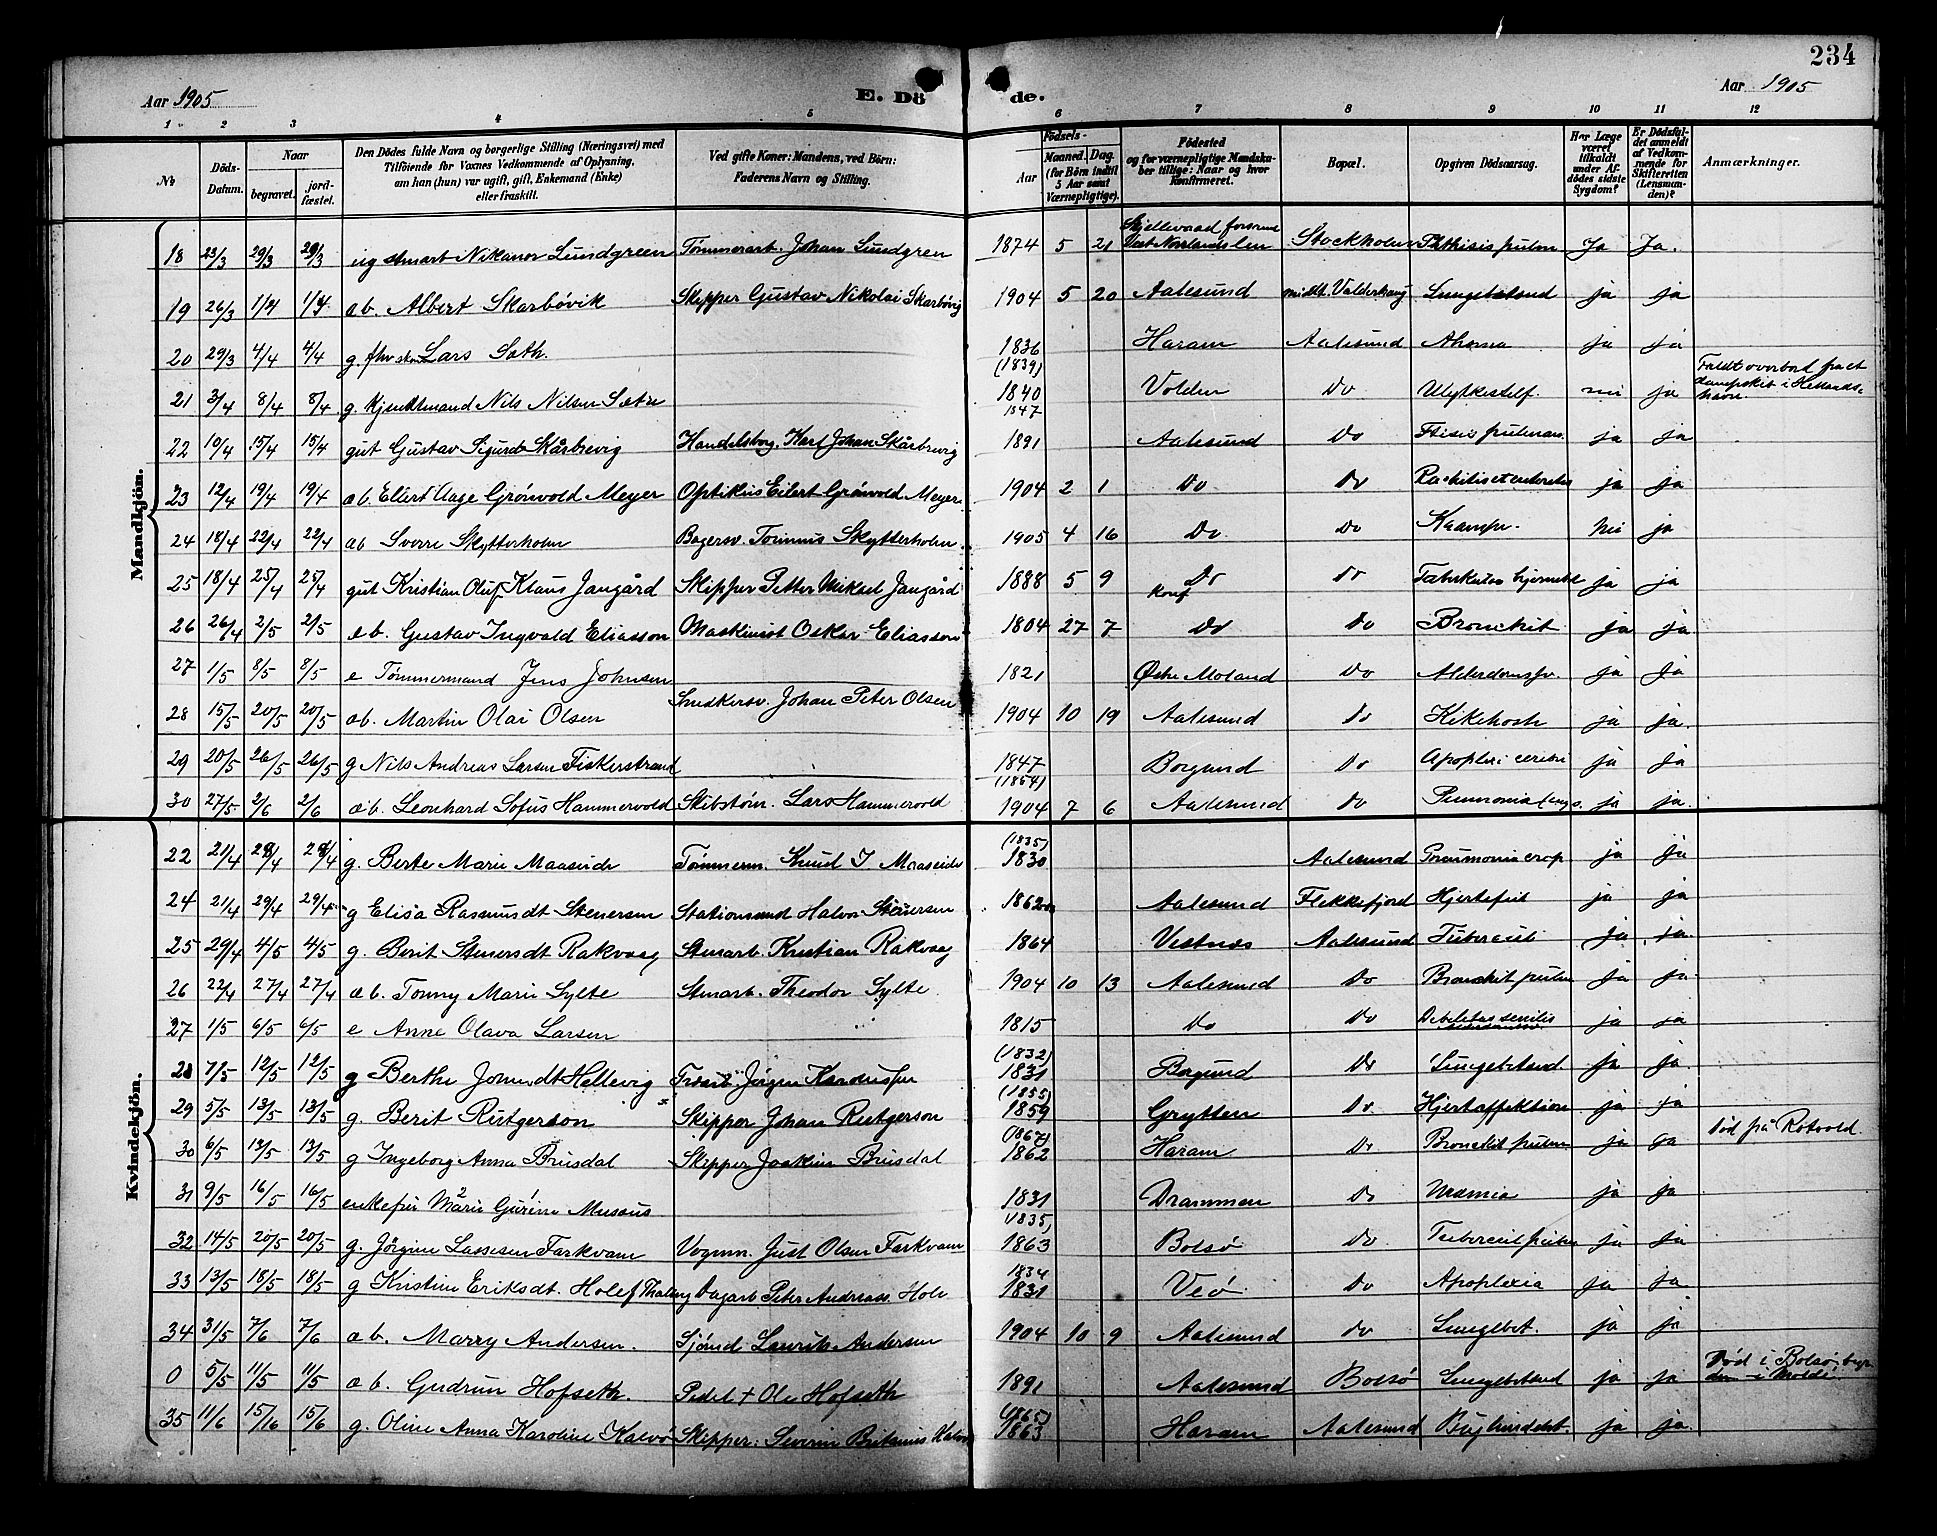 234
Aar 1905 E. Dö de. Aar 1905
1 2 3 4 5 6 7 8 9 10 11 12
№ Döds-Datum. Naar begravet. jord-fæstet. Den Dödes fulde Navn og borgerlige Stilling (Næringsvei) med Tilföiende for Voxnes Vedkommende af Oplysning, om han (hun) var ugift, gift, Enkemand (Enke) eller fraskilt. Ved gifte Koner: Mandens, ved Börn: Faderens Navn og Stilling. Födsels- Aar Maaned. Dag. (for Börn indtil 5 Aar samt Værnepligtige). Födested og for værnepligtige Mandskaber tillige: Naar og hvor Konfirmeret. Bopæl. Opgiven Dödsaarsag. Har Læge været tilkaldt under Afdödes sidste Sygdom? Er Dödsfaldet anmeldt af Vedkommende for Skifteretten (Lensmanden)? Anmærkninger.
Mandkjön.
18 23/3 29/3 29/3 ug stmart Nikanor Lundgreen Tømmerarb. Johan Lundgren 1874 5 21 Stockholm Phthisis pulm Ja Ja.
19 26/3 1/4 1/4 ab. Albert Skarbøvik Skipper Gustav Nikolai Skarbøvig 1904 5 20 Aalesund midlt. Valderhaug Lungebetænd ja ja
20 29/3 4/4 4/4 g. Lars Sæth. 1836 (1839) Haram Aalesund ja ja
21 3/4 8/4 8/4 g. Kjendtmand Nils Nilsen Sætre 1840 1847 Volden Do Ulykkestilf. nei ja Faldt overbord fra et dampskib i
22 10/4 15/4 15/4 gut Gustav Sigurd Skårbrevig Handelsborg. Karl Johan Skårbrevig 1891 Aalesund Do Ftisis pulmon. ja ja
23 12/4 19/4 19/4 ab. Eilert Aage Grönvold Meyer Optikus Eilert Grönvold Meyer 1904 2 1 Do Do ja ja
24 18/4 22/4 22/4 ab Sverre Skytterholm Bogersv. Skytterholm 1905 4 16 Do Do Krampe. Nei ja
25 18/4 25/4 25/4 gut Kristian Oluf Klaus Jangård Skipper Petter Mikael Jangård 1888 5 9 Do Konf Do ja ja
26 26/4 2/5 2/5 eb. Gustav Ingvald Eliasson Maskinist Oskar Eliasson 1804 27 7 Do Do Bronchit ja ja.
27 1/5 8/5 8/5 e Tømmermand Jens Johnsen 1821 Østre Moland Do Alderdomssv. ja ja
28 15/5 20/5 20/5 ab. Martin Olai Olsen Snedkersv. Johan Peter Olsen 1904 10 19 Aalesund Do Kikhoste ja ja.
29 20/5 26/5 26/5 g Nils Andreas Larsen Fiskerstrand 1847 (1854) Borgund Do Apoplexi cerebri ja ja
30 27/5 2/6 2/6 ab. Leonhard Sofus Hammervold Skibstøm. Lars Hammervold 1904 7 6 Aalesund Do Pneumonia ja ja.
Kvindekjön.
22 21/4 28/4 28/4 g. Berte Marie Maaseide Tømmerm. Knud I. Maaseide (1835) 1830 Aalesund Pneumonia crop ja ja
24 21/4 29/4 29/4 g Elisa Rasmusdt Stenersen Stationsmand Halvor Stenersen 1862 Aalesund Flekkefjord Hjertefeil ja ja
25 29/4 4/5 4/5 g. Berit Stenersdt Rakvaag Stenarb. Kristian Rakvaag 1864 Vestnes Aalesund Tubercul ja ja.
26 22/4 27/4 27/4 ab. Tonny Marie Sylte Stenarb. Theodor Sylte 1904 10 13 Aalesund Do Bronchit pulm ja ja
27 1/5 6/5 6/5 e Anne Olava Larsen 1815 Do Do Debilitas senilis ja ja
28 7/5 12/5 12/5 g Berthe Hellevig Jørgen (1832) 1831 Borgund Do Lungebetænd ja ja.
29 5/5 13/5 13/5 g. Berit Rutgerson Skipper Johan Rutgerson (1855) 1859 Grytten Do Hjertaffektion ja ja
30 6/5 13/5 13/5 g Ingeborg Anna Brusdal Skipper Joakim Brusdal (1867) 1862 Haram Do Bronchit pulm ja ja Død på Rotvold
31 9/5 16/5 16/5 enkefru Marie Gurine Musæus 1831 Drammen Do Uræmia ja ja
32 14/5 20/5 20/5 g. Jørgine Lassesen Farkvam Vognm. Just Olsen Farkvam 1835, 1863 Bolsø Do Tubercul pulm ja ja
33 13/5 18/5 18/5 g Kristine Eriksdt. Hole Dagarb Peter Andreas Hole 1834 1831 Veø Do Apoplexia ja ja
34 31/5 7/6 7/6 ab. Marry Andersen. Sjømd. Laurits Andersen 1904 10 9 Aalesund do Lungebet. ja ja
0 5/5 11/5 11/5 ab. Gudrun Hofseth. Pedel + Ole Hofseth 1891 Aalesund Bolsø Lungebetænd ja ja Død i Bolsø, i Molde.
35 11/6 15/6 15/6 g. Oline Anna Karoline Kalvø Skipper: Severin Kalvø (1865) 1863 Haram Aalesund ja ja